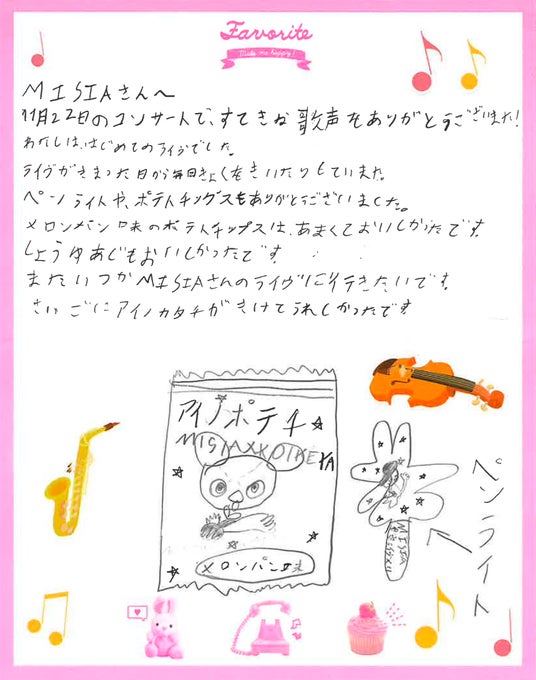 Favorite
Make me happy!
MISIAさんへ
11月22日のコンサートで、すてきな歌声をありがとうございました!
わたしは、はじめてのライヴでした。
ライヴがきまった日から毎日きょくをきいたりしていました。
ペンライトや、ポテトチップスもありがとうございました。
メロンパン味のポテトチップスは、あまくておいしかったです
しょうゆあじもおいしかったです。
またいつかMISIAさんのライヴに行きたいです。
さいごにアイノカタチがきけてうれしかったです
アイノポテチ
MISIAXKOIKEYA
メロンパン味
MISIA
ペンライト